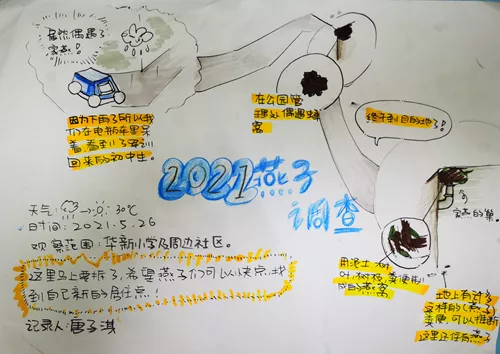 虽然偶遇了
家燕!
因为下雨了所以我
们在电瓶车里坐
着看到了军训
回来的初中生。
在公园管
理处偶遇蜂
窝
终于到目的地了!
2021燕子
调查
家燕的巢。
用泥土
树枝
成的燕窝
地上有许多
这样的(燕子)
粪便,可以推断
这里还住有燕子
天气: 30℃
日期:2021.5.26
观察范围:华新小学及周边社区。
这里马上要拆了,希望燕子们可以快点找
到自己新的居住点!
记录人:唐子淇